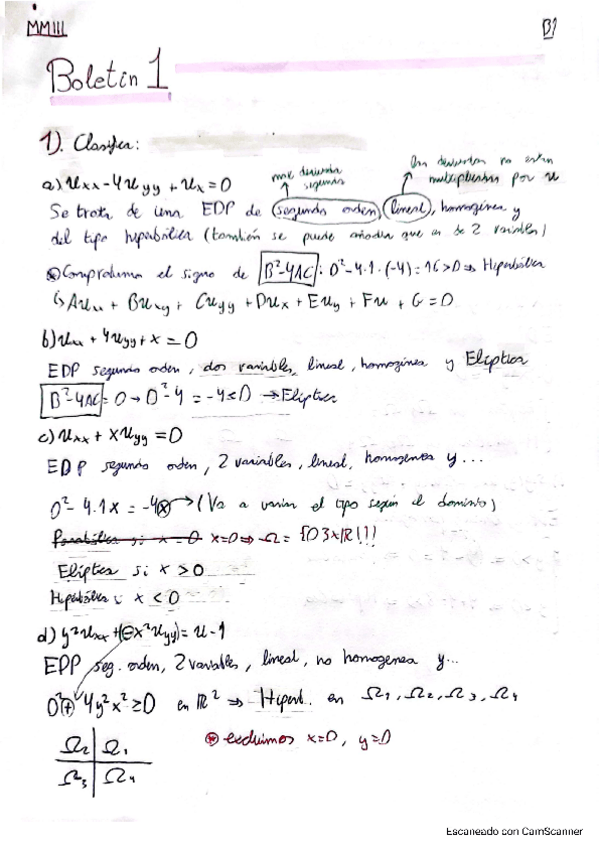 MMIII
B1
Boletín 1
1). Clasifica:
a) Uxx - 4Uyy + Ux = 0
multiplicadas por u
Se trata de una EDP de segundo orden, lineal, homogénea y
del tipo hiperbólica (también se puede añadir que es de 2 variables)
Comprobamos el signo de B²-4AC: 0²-4·1·(-4) = 16 > 0 ⇒ Hiperbólica
↳ AUxx + BUxy + CUyy + DUx + EUy + Fu + G = 0
b) Uxx + 4Uyy + x = 0
EDP segundo orden, dos variables, lineal, homogénea y Elíptica
B²-4AC = 0 → 0²-4 = -4 < 0 → Elíptica
c) Uxx + xUyy = 0
EDP segundo orden, 2 variables, lineal, homogenea y...
0²-4·1x = -4x → (Va a variar el tipo según el dominio)
Parabólica si x = 0 x=0 ⇒ Ω = {0}xℝ!!)
Elíptica si x > 0
Hiperbólica si x < 0
d) y²Uxx + (-x²Uyy) = u - 1
EDP seg. orden, 2 variables, lineal, no homogenea y...
0² + 4y²x² ≥ 0 en ℝ² ⇒ Hiperb. en Ω1, Ω2, Ω3, Ω4
Ω2 | Ω1
Ω3 | Ω4
⊛ excluimos x=0, y=0
Escaneado con CamScanner